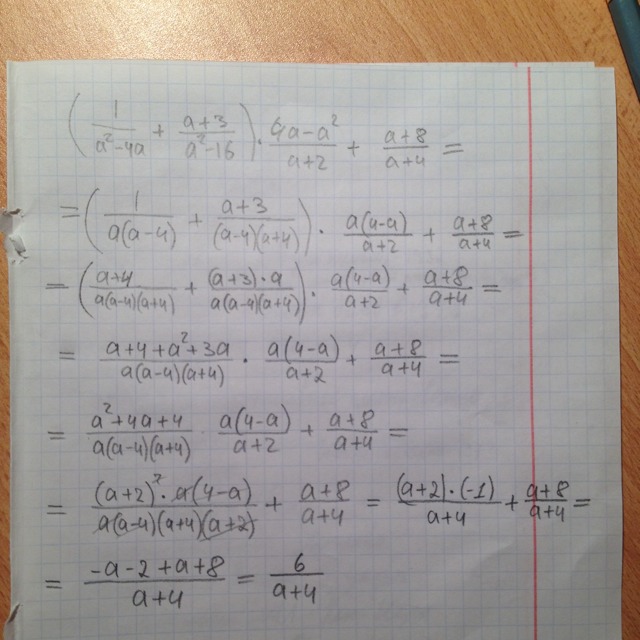 (1/(a²-4a) + (a+3)/(a²-16)) · (4a-a²)/(a+2) + (a+8)/(a+4) =
= (1/(a(a-4)) + (a+3)/((a-4)(a+4))) · a(4-a)/(a+2) + (a+8)/(a+4) =
= ((a+4)/(a(a-4)(a+4)) + ((a+3)·a)/(a(a-4)(a+4))) · a(4-a)/(a+2) + (a+8)/(a+4) =
= (a+4+a²+3a)/(a(a-4)(a+4)) · a(4-a)/(a+2) + (a+8)/(a+4) =
= (a²+4a+4)/(a(a-4)(a+4)) · a(4-a)/(a+2) + (a+8)/(a+4) =
= ((a+2)²·a(4-a))/(a(a-4)(a+4)(a+2)) + (a+8)/(a+4) = ((a+2)·(-1))/(a+4) + (a+8)/(a+4) =
= (-a-2+a+8)/(a+4) = 6/(a+4)